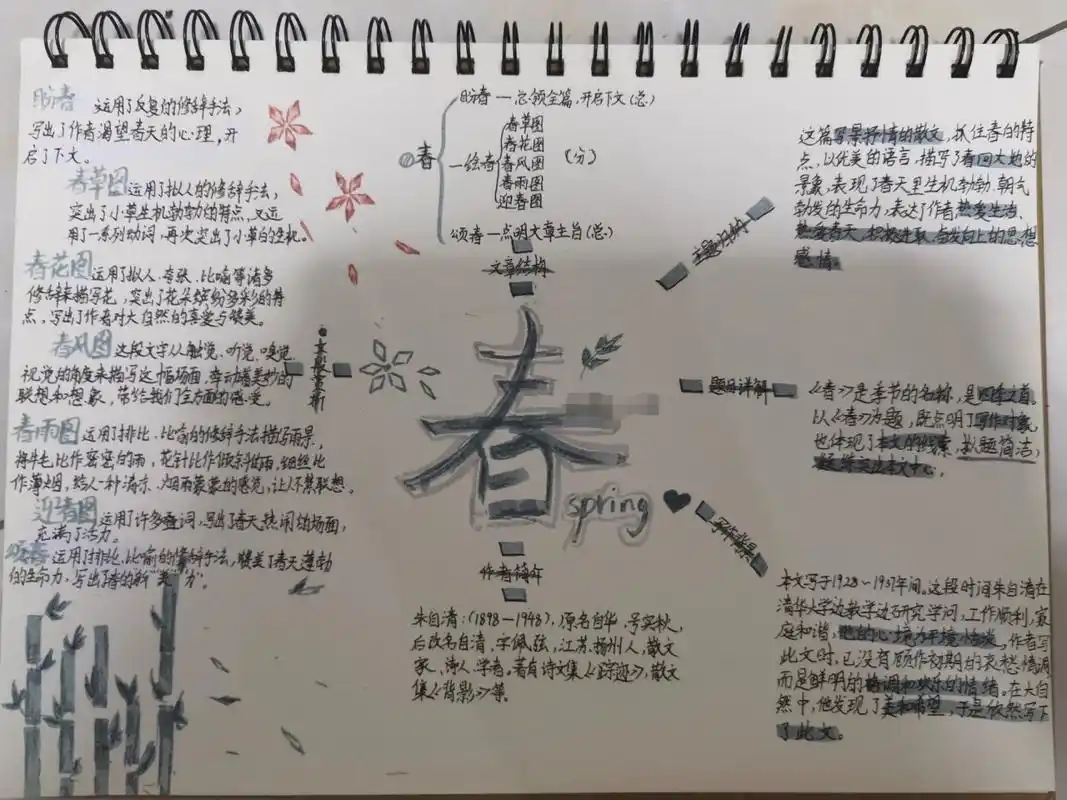 盼春 运用了反复的修辞手法，
写出了作者渴望春天的心理，开
启了下文。
春草图 运用了拟人的修辞手法，
突出了小草生机勃勃的特点，又运
用了一系列动词，再次突出了小草的生机。
春花图 运用了拟人、夸张、比喻等诸多
修辞来描写花，突出了花朵缤纷多彩的特
点，写出了作者对大自然的喜爱与赞美。
春风图 这段文字从触觉、听觉、嗅觉、
视觉的角度来描写这幅场面，牵动着美妙的
联想和想象，带给我们全方面的感受。
春雨图 运用了排比、比喻的修辞手法描写雨景，
将牛毛比作密密的雨，花针比作倾斜的雨，细丝比
作薄烟，给人一种清凉、烟雨蒙蒙的感觉，让人不禁联想。
迎春图 运用了许多叠词，写出了春天热闹的场面，
充满了活力。
颂春 运用了排比、比喻的修辞手法，赞美了春天蓬勃
的生命力，写出了春的新“美”力”。
春
盼春—总领全篇，开启下文（总）
绘春
春草图
春花图
春风图
春雨图
迎春图
（分）
颂春—点明文章主旨（总）
文章结构
春
spring
作者简介
朱自清：（1898—1948），原名自华，号实秋，
后改名自清，字佩弦，江苏扬州人，散文
家、诗人、学者。著有诗文集《踪迹》，散文
集《背影》等。
这篇写景抒情的散文，抓住春的特
点，以优美的语言，描写了春回大地的
景象，表现了春天里生机勃勃、朝气
勃发的生命力，表达了作者热爱生活、
热爱春天、积极进取、奋发向上的思想
感情。
题目详解
《春》是季节的名称，是四季之首。
以《春》为题，既点明了写作对象，
也体现了本文的线索，拟题简洁，
写作背景
本文写于1928~1937年间。这段时间朱自清在
清华大学边教学边研究学问，工作顺利，家
庭和谐，他的心境为平境、恬淡。作者写
此文时，已没有颜作初期的哀愁情调
而是鲜明的格调和欢乐的情绪。在大自
然中，他发现了美和希望，于是依然写下
了此文。